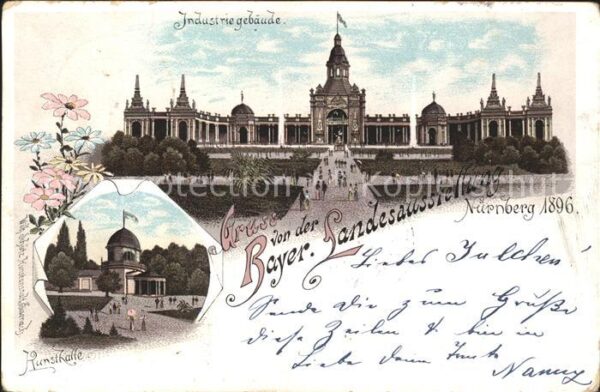 Industriegebäude.
Gruss von der
Bayer. Landesausstellung
Nürnberg 1896.
Kunsthalle.
Liebes Julchen!
Sende Dir zum Gruße
diese Zeilen & bin in
Liebe Deine
Nanny